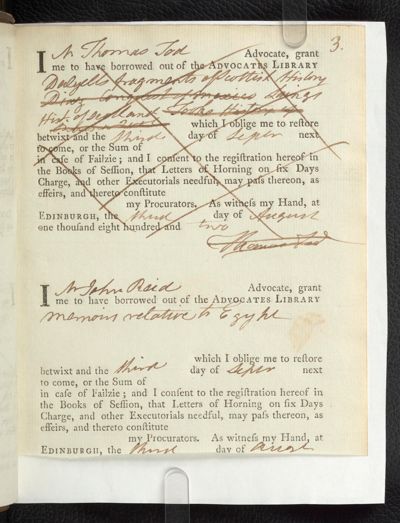 3.
I Mr Thomas Tod Advocate, grant
me to have borrowed out of the ADVOCATES LIBRARY
Dalyells fragments of Scottish History
Diaz Conquest of Mexico Laings
Hist. of Scotland
which I oblige me to reſtore
betwixt and the third day of Seper next
to come, or the Sum of
in caſe of Failzie; and I conſent to the regiſtration hereof in
the Books of Seſſion, that Letters of Horning on ſix Days
Charge, and other Executorials needful, may paſs thereon, as
effeirs, and thereto conſtitute
my Procurators. As witneſs my Hand, at
EDINBURGH, the third day of August
one thouſand eight hundred and two
Thomas Tod
I Mr John Reid Advocate, grant
me to have borrowed out of the ADVOCATES LIBRARY
memoirs relative to Egypt
which I oblige me to reſtore
betwixt and the third day of Seper next
to come, or the Sum of
in caſe of Failzie; and I conſent to the regiſtration hereof in
the Books of Seſſion, that Letters of Horning on ſix Days
Charge, and other Executorials needful, may paſs thereon, as
effeirs, and thereto conſtitute
my Procurators. As witneſs my Hand, at
EDINBURGH, the third day of Augt